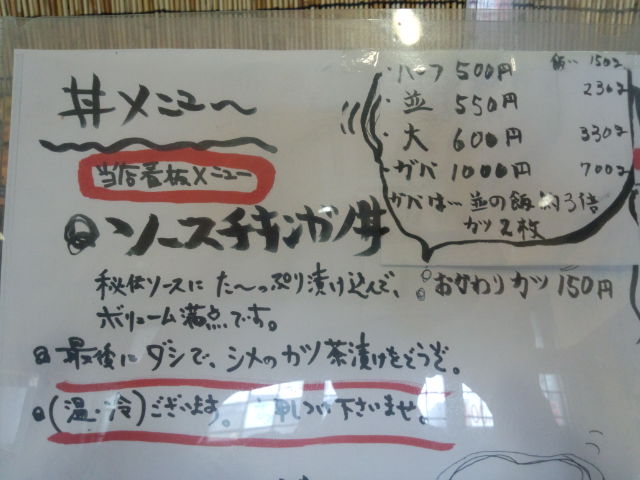 丼メニュー
当店看板メニュー
ソースチキンカツ丼
秘伝ソースにた〜っぷり漬け込んで、
ボリューム満点です。
最後にダシで、シメのカツ茶漬けをどうぞ。
(温・冷)ございます。 申しつけ下さいませ。
・ハーフ 500円 飯… 150g
・並 550円 230g
・大 600円 330g
・ガバ 1000円 700g
ガバは…並の飯約3倍
カツ2枚
おかわりカツ 150円